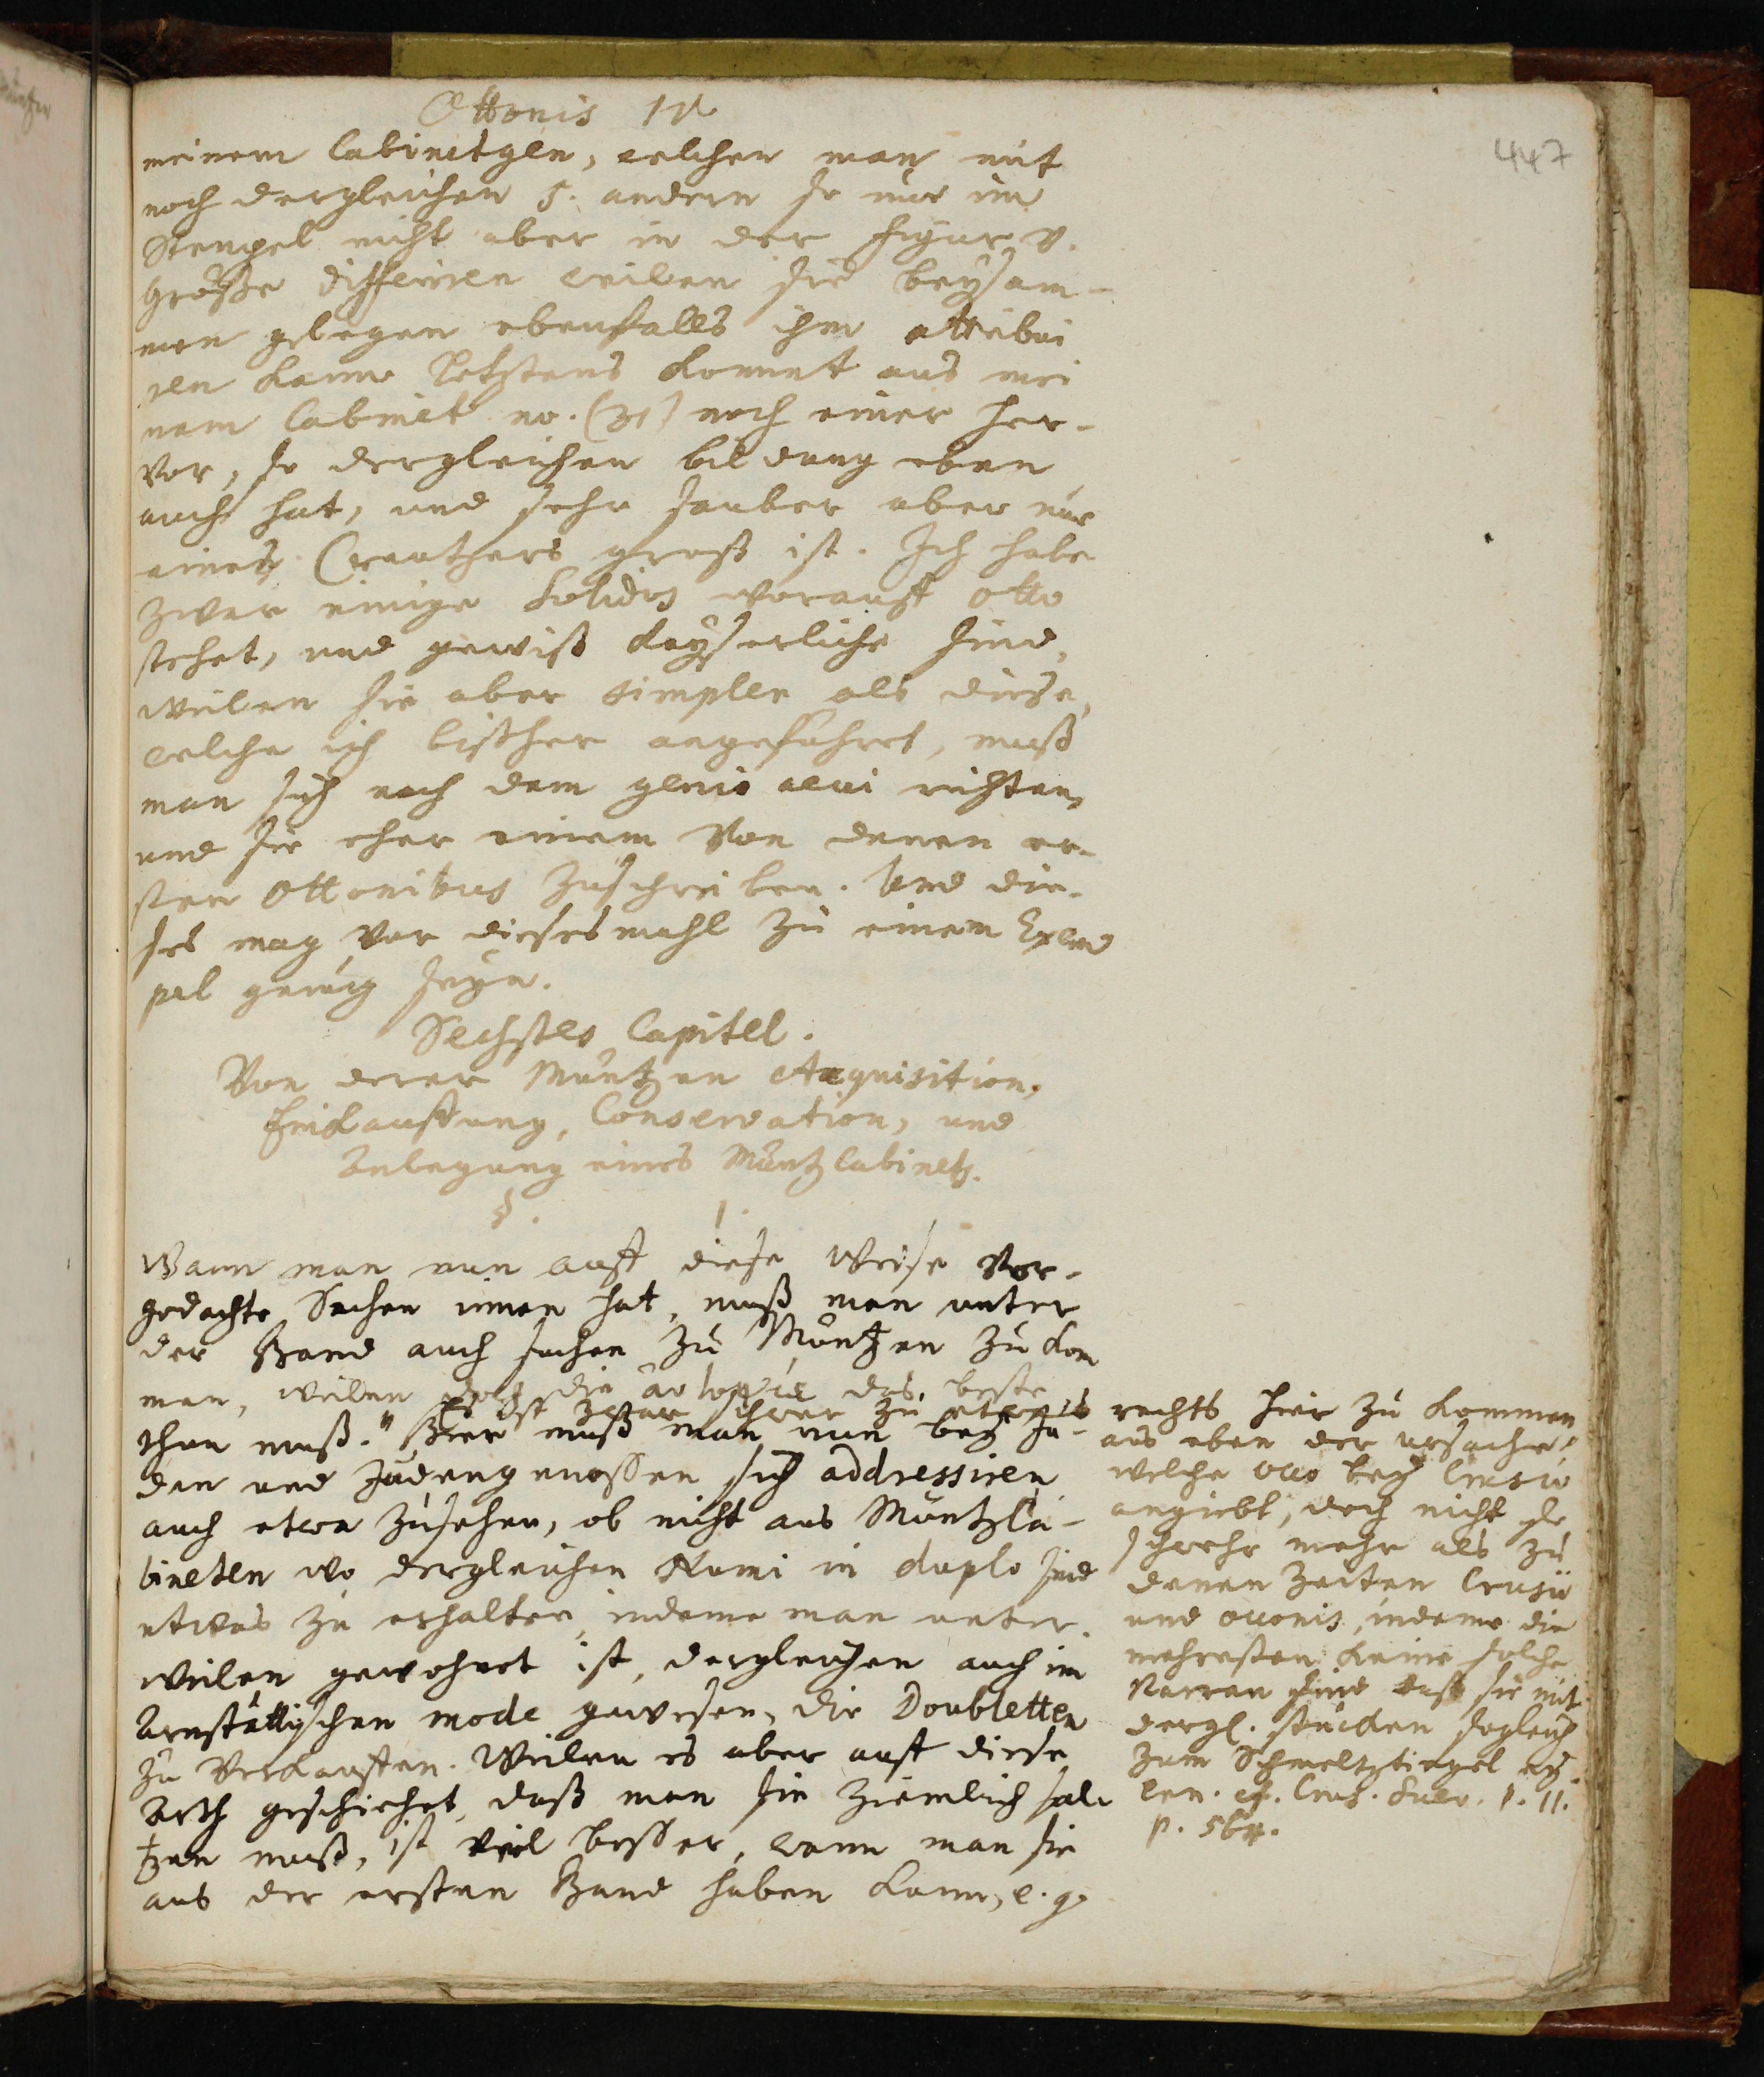 Ottonis IV
447
meinem Cabinetgen, welchen man mit
noch dergleichen 5. andern so nur im
Stempel nicht aber in der Figur v.
Größe differiren weilen sie beysam-
men gelegen ebenfalls ihm attribui
ren kann. Letztens kommt aus mei
nem Cabinet no. (31) noch einer her-
vor, so dergleichen bildung eben
auch hat, und sehr sauber aber nur
eines Creuthers groß ist. Ich habe
zwar einige Solidos worauff Otto
stehet, und gewiß Kayserliche sind,
weilen sie aber simpler als diese,
welche ich bißher angeführet, muß
man sich nach dem genio aevi richten,
und sie eher einem von denen er-
sten Ottonibus zuschreiben. Und die-
ses mag vor diesesmahl zu einem Exem
pel genug seyn.
Sechstes Capitel.
Von derer Müntzen Acquisition,
Einkauffung, Conservation, und
Anlegung eines Müntzcabinets.
§. 1.
Wann man nun auff diese Weise vor-
gedachte Sachen innen hat, muß man unter
der Hand auch suchen zu Müntzen zu kom
men, weilen doch die αυτοψια das beste
thun muß." Es ist zwar schwer zu etwas
Hier muß man nun bey Ju-
den und Judengenossen sich addressiren
auch etwa zusehen, ob nicht aus Müntzca-
bineten wo dergleichen Numi in duplo sind
etwas zu erhalten, indeme man unter-
weilen gewohnet ist, dergleichen auch im
Arnstättischen mode gewesen, die Doubletten
zu verkauffen. Weilen es aber auff diese
Arth geschiehet, daß man sie ziemlich sal-
tzen muß, ist viel besser, wann man sie
aus der ersten Hand haben kann, e. g.
rechts hier zu kommen
aus eben der ursache,
welche Occo bey Crusio
angiebt, doch nicht so
schwehr mehr als zu
denen Zeiten Crusii
und Occonis, indeme die
mehresten keine solche
Narren sind daß sie mit
dergl. stücken sogleich
zum Schmeltztiegel ey
len. cf. Crus. Suev. P. II.
p.